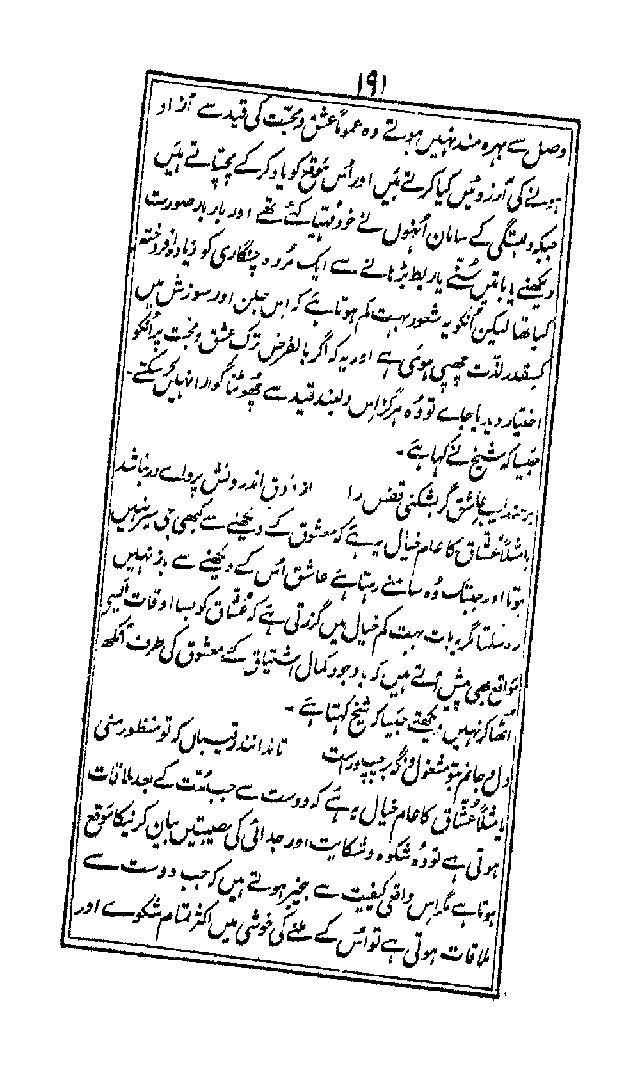 ۱۹۱
وصل سے بہرہ مند نہیں ہوتے وہ عموماً عشق و محبت کی قید سے آزاد
ہونے کی آرزوئیں کیا کرتے ہیں اور اُس موقع کو یاد کرکے پچتاتے ہیں
جبکہ دلبستگی کے سامان اُنہوں نے خود مہیا کئے تھے اور بار بار صورت
دیکھنے یا باتیں سُننے یا ربط بڑہانے سے ایک مُردہ چنگاری کو زیادہ افروختہ
کیا تھا لیکن اُنکو یہ شعور بہت کم ہوتا ہے کہ اس جلن اور سوزش میں
کسقدر لذت چھپی ہوئی ہے اور یہ کہ اگر بالفرض ترک عشق و محبت پر اُنکو
اختیار دیدیا جاے تو وہ ہرگز اس دلبند قید سے چُھوٹنا گوارا نہیں کرسکتے۔
جیسا کہ شیخ نے کہا ہے۔
بر عندلیب عاشق گر بشکنی قفس را از ذوق اندرونش پرواے در نباشد
یا مثلاً عُشّاق کا عام خیال یہ ہے کہ معشوق کے دیکھنے سے کبھی جی سیر نہیں
ہوتا اور جبتک وُہ سامنے رہتا ہے عاشق اُس کے دیکھنے سے باز نہیں
رہ سکتا مگر یہ بات بہت کم خیال میں گزرتی ہے کہ عُشّاق کو بسا اوقات ایسے
مواقع بھی پیش آتے ہیں کہ باوجود کمال اشتیاق کے معشوق کی طرف آنکھ
اُٹھا کر نہیں دیکھتے جیسا کہ شیخ کہتا ہے۔
دل و جانم بتو مشغول و نگہ بر چپ و راست تا ندانند رقیباں کہ تو منظور منی
یا مثلاً عُشّاق کا عام خیال یہ ہے کہ دوست سے جب مُدّت کے بعد ملاقات
ہوتی ہے تو وُہ شکوہ و شکایت اور جدائی کی مصیبتیں بیان کرنیکا موقع
ہوتا ہے مگر اس واقعی کیفیت سے بیخبر ہوتے ہیں کہ جب دوست سے
ملاقات ہوتی ہے تو اُس کے ملنے کی خوشی میں اکثر تمام شکوے اور